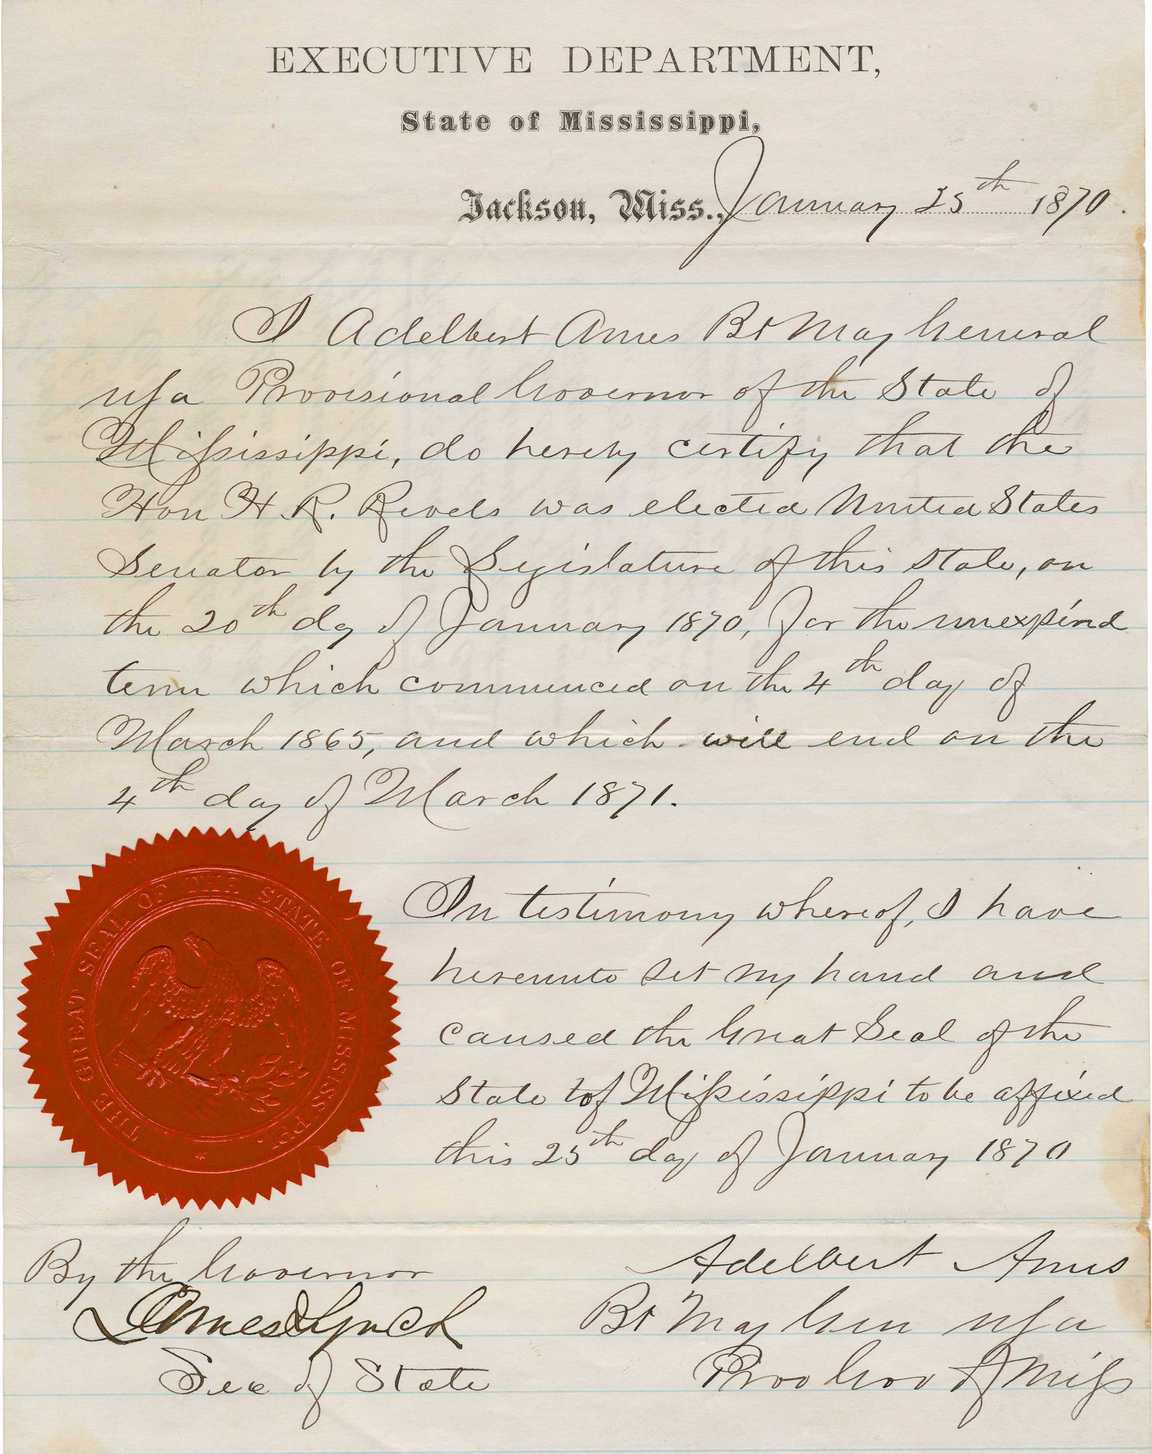 EXECUTIVE DEPARTMENT,
State of Mississippi,
Jackson, Miss., January 25th 1870.
I Adelbert Ames Bt Maj General
USA Provisional Governor of the State of
Mississippi, do hereby certify that the
Hon H. R. Revels was elected United States
Senator by the Legislature of this State, on
the 20th day of January 1870, for the unexpired
term which commenced on the 4th day of
March 1865, and which will end on the
4th day of March 1871.
In testimony whereof, I have
hereunto set my hand and
caused the Great Seal of the
State of Mississippi to be affixed
this 25th day of January 1870
THE GREAT SEAL OF THE STATE OF MISSISSIPPI.
By the Governor
James Lynch
Sec of State
Adelbert Ames
Bt Maj Gen USA
Prov Gov of Miss